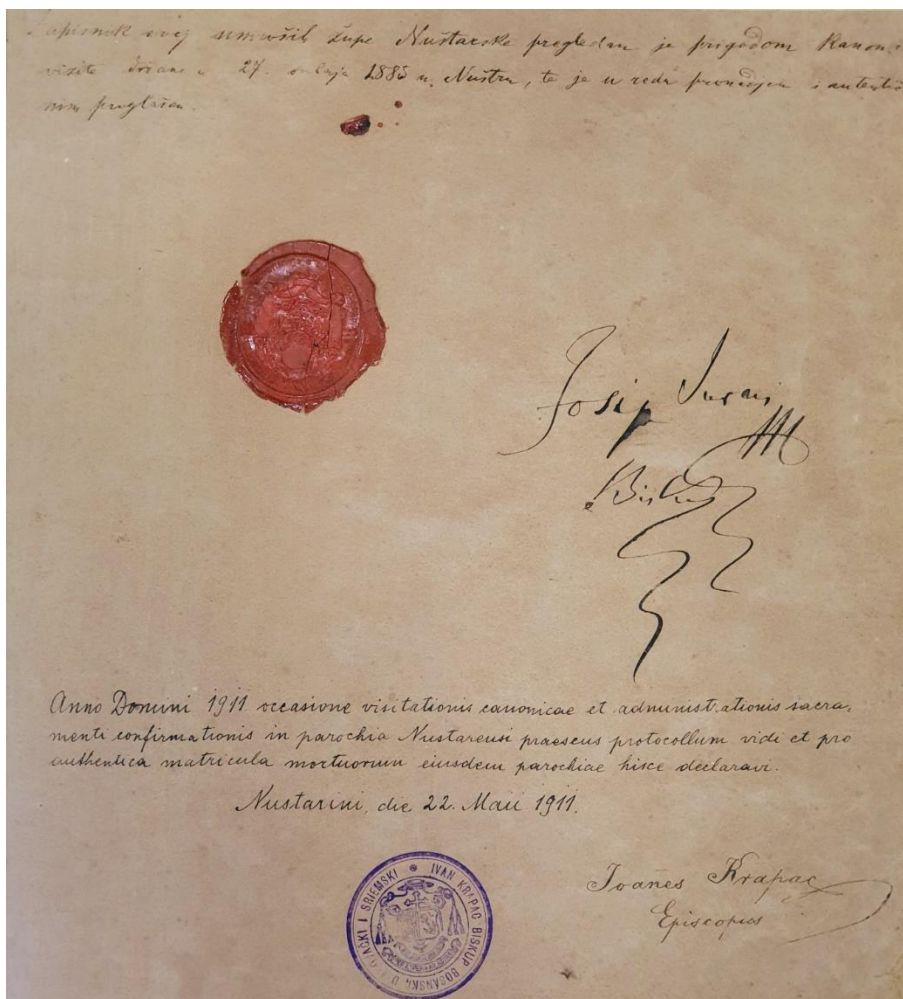 Zapisnik ovaj umrošil župe Nuštarske pregledan je prigodom Kanon.
visite držane 27. 1885 u Nuštru, te je u redu pronadjen i autentič
nim proglašen.
Josip Juraj
Biskup
Anno Domini 1911 occasione visitationis canonicae et administrationis sacra,
menti confirmationis in parochia Nustarensi praesens protocollum vidi et pro
authentica matricula mortuorum eiusdem parochiae hisce declaravi.
Nustarini, die 22. Maii 1911.
Joañes Krapac
Episcopus
IVAN KRAPAC BISKUP BOSANSKI, I SRIEMSKI